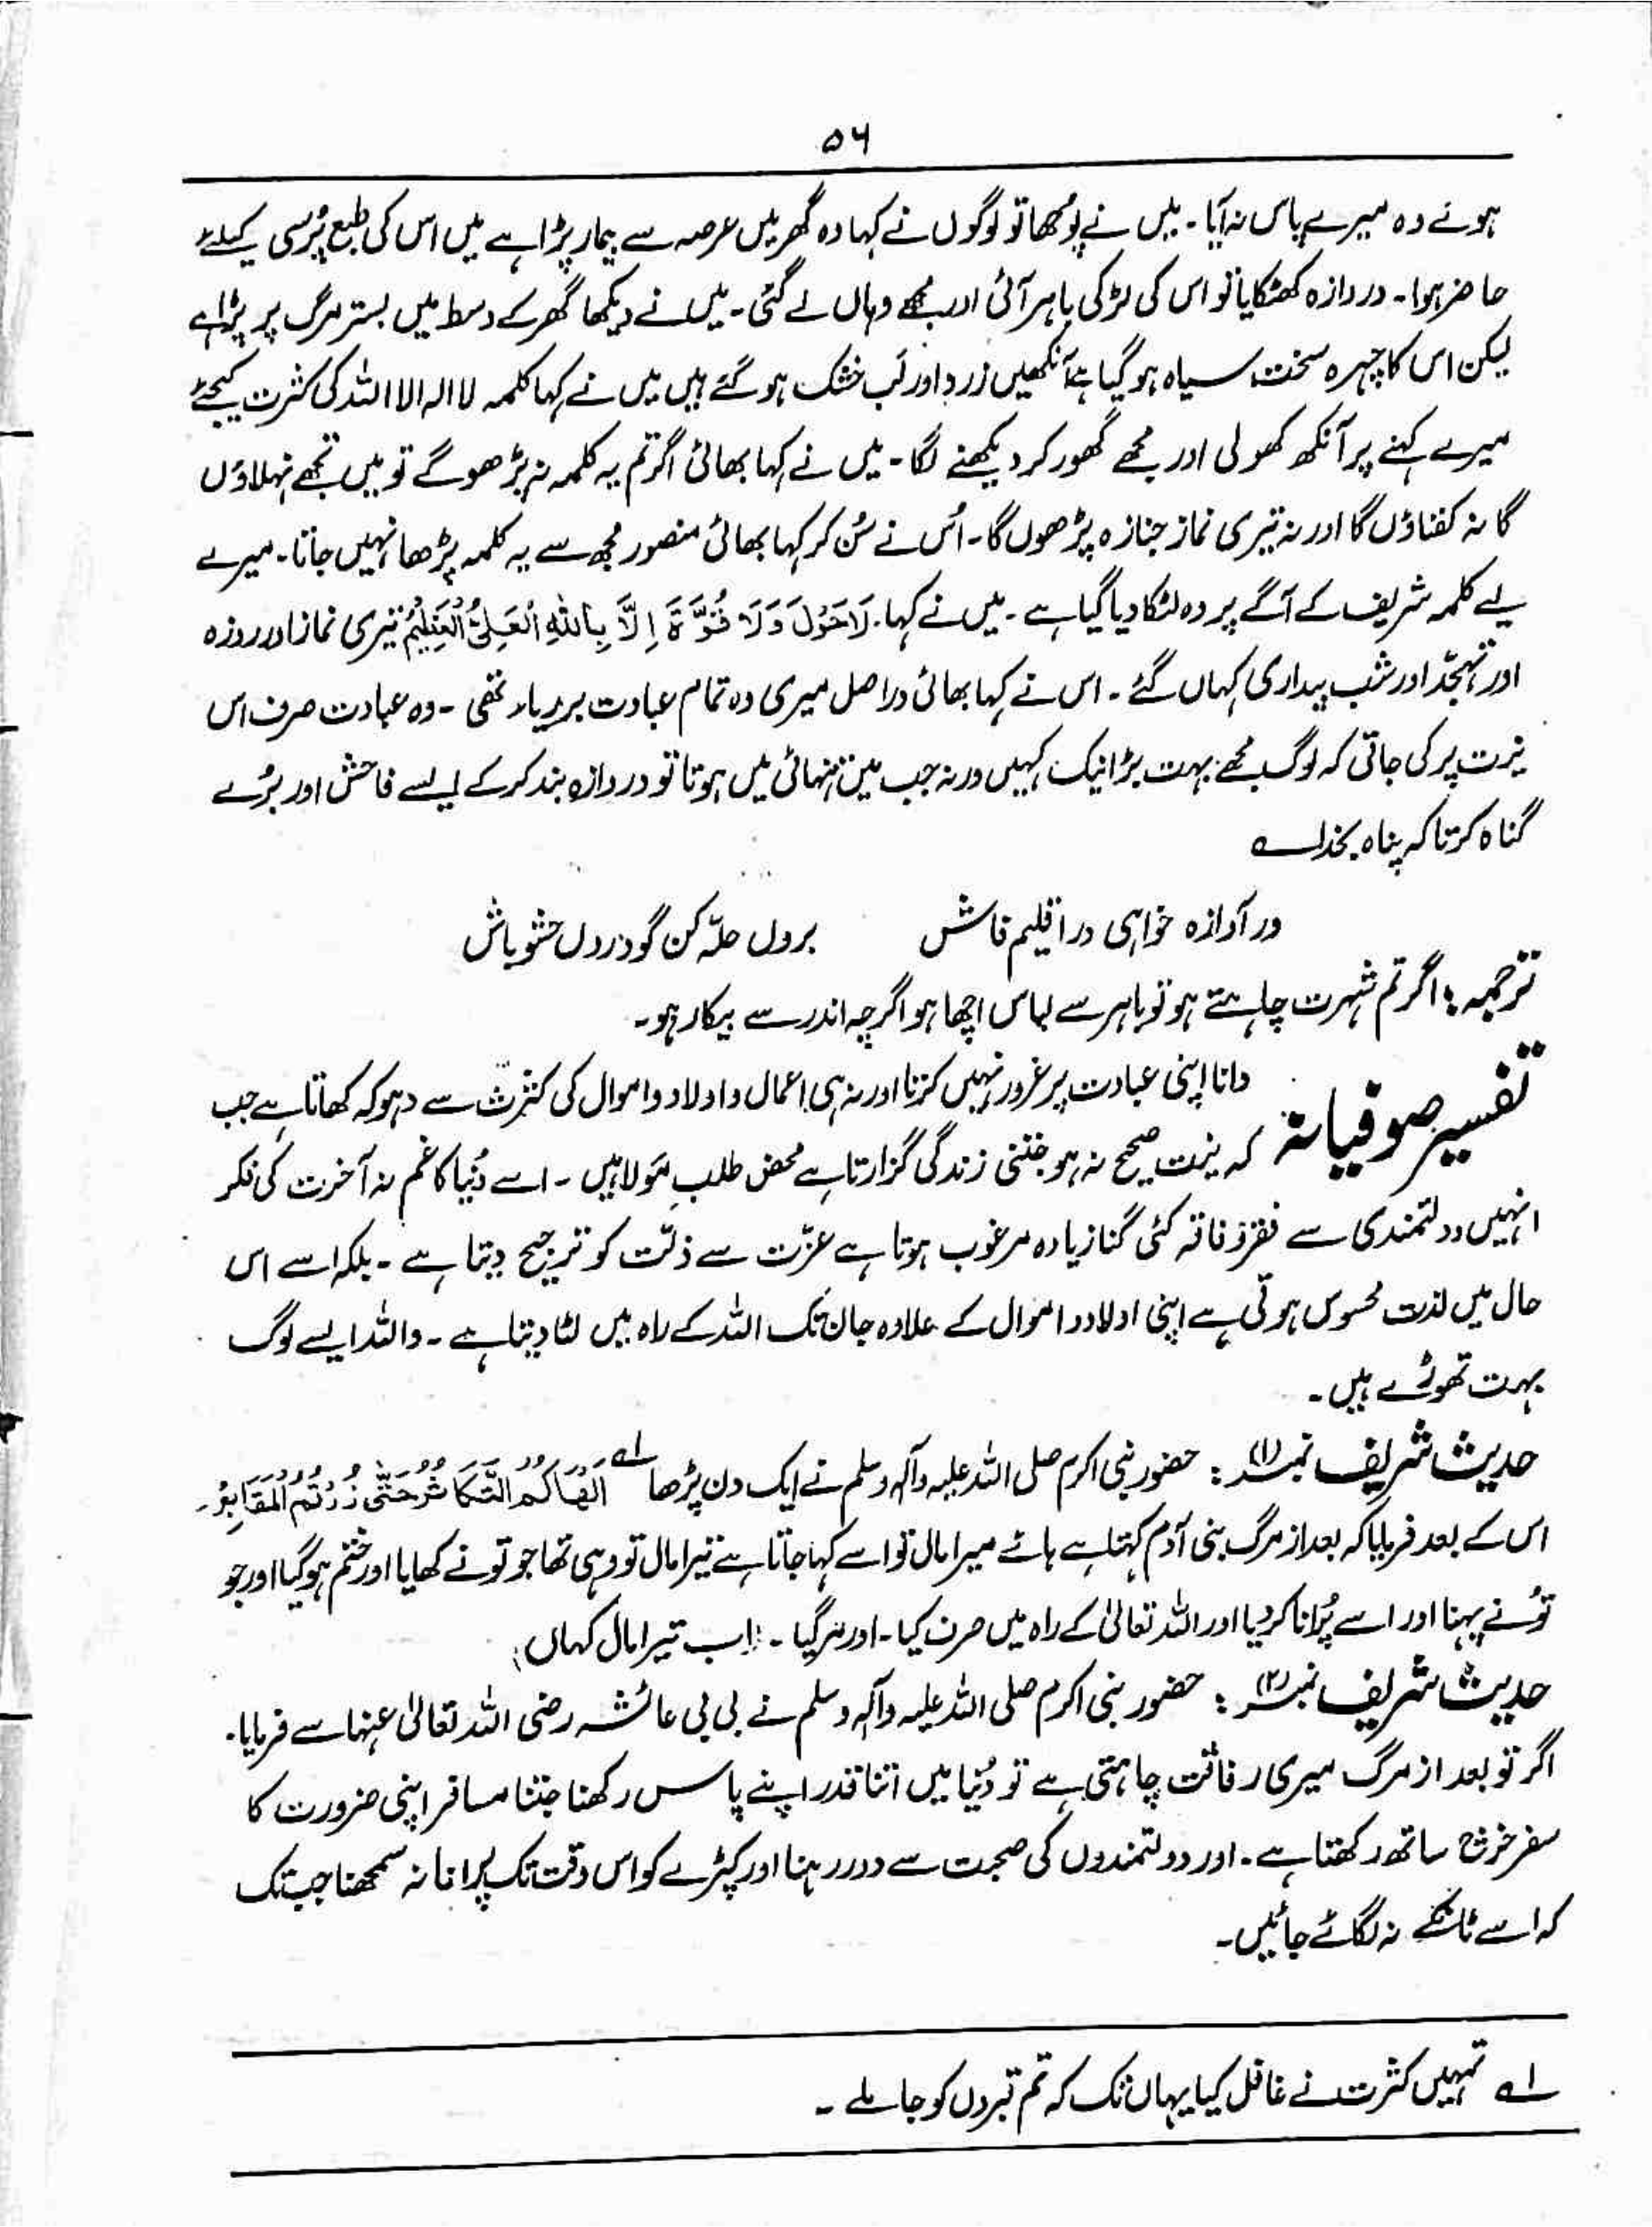 ۵۶
ہوئے وہ میرے پاس نہ آیا۔ میں نے پُوچھا تو لوگوں نے کہا وہ گھر میں عرصہ سے بیمار پڑا ہے میں اس کی طبع پُرسی کیلئے
حاضر ہوا۔ دروازہ کھٹکایا تو اس کی لڑکی باہر آئی اور مجھے وہاں لے گئی۔ میں نے دیکھا گھر کے وسط میں بستر مرگ پر پڑا ہے
لیکن اس کا چہرہ سخت سیاہ ہو گیا ہے آنکھیں زرد اور لَب خشک ہو گئے ہیں میں نے کہا کلمہ لا الہ الا اللہ کی کثرت کیجئے
میرے کہنے پر آنکھ کھولی اور مجھے گھور کر دیکھنے لگا۔ میں نے کہا بھائی اگر تم یہ کلمہ نہ پڑھو گے تو میں تجھے نہلاؤں
گا نہ کفناؤں گا اور نہ تیری نماز جنازہ پڑھوں گا۔ اُس نے سُن کر کہا بھائی منصور مجھ سے یہ کلمہ پڑھا نہیں جاتا۔ میرے
لیے کلمہ شریف کے آگے پردہ لٹکا دیا گیا ہے۔ میں نے کہا۔ لَاحَوْلَ وَلَا قُوَّةَ اِلَّا بِاللّٰهِ الْعَلِیُّ الْعَظِیْمُ تیری نماز اور روزہ
اور تہجّد اور شب بیداری کہاں گئے۔ اس نے کہا بھائی دراصل میری وہ تمام عبادت بر ریاء تھی۔ وہ عبادت صرف اس
نیت پر کی جاتی کہ لوگ مجھے بہت بڑا نیک کہیں ورنہ جب میں تنہائی میں ہوتا تو دروازہ بند کر کے ایسے فاحش اور بُرے
گناہ کرتا کہ پناہ بخدا ے
ور آوازہ خواہی در اقلیم فاش برول حلّہ کن گو درول حشو باش
ترجمہ: اگر تم شہرت چاہتے ہو تو باہر سے لباس اچھا ہو اگرچہ اندر سے بیکار ہو۔
تفسیر صوفیانہ دانا اپنی عبادت پر غرور نہیں کرتا اور نہ ہی اعمال و اولاد و اموال کی کثرت سے دہوکہ کھاتا ہے جب
کہ نیت صحیح نہ ہو جتنی زندگی گزارتا ہے محض طلبِ مَولا میں۔ اسے دُنیا کا غم نہ آخرت کی فکر
انہیں دولتمندی سے فقر و فاقہ کئی گنا زیادہ مرغوب ہوتا ہے عزّت سے ذلّت کو ترجیح دیتا ہے۔ بلکہ اسے اس
حال میں لذت محسوس ہوتی ہے اپنی اولاد و اموال کے علاوہ جان تک اللہ کے راہ میں لٹا دیتا ہے۔ واللہ ایسے لوگ
بہت تھوڑے ہیں۔
حدیث شریف نمبر (۱): حضور نبی اکرم صلی اللہ علیہ وآلہ وسلم نے ایک دن پڑھا ۱ے اَلْهَاكُمُ التَّكَاثُرُ حَتّٰى زُرْتُمُ الْمَقَابِرَ۔
اس کے بعد فرمایا کہ بعد از مرگ بنی آدم کہتا ہے ہائے میرا مال تو اسے کہا جاتا ہے تیرا مال تو وہی تھا جو تو نے کھایا اور ختم ہو گیا اور جو
تُو نے پہنا اور اسے پُرانا کر دیا اور اللہ تعالیٰ کے راہ میں صرف کیا۔ اور مر گیا۔ اب تیرا مال کہاں؟
حدیث شریف نمبر (۲): حضور نبی اکرم صلی اللہ علیہ وآلہ وسلم نے بی بی عائشہ رضی اللہ تعالیٰ عنہا سے فرمایا۔
اگر تو بعد از مرگ میری رفاقت چاہتی ہے تو دُنیا میں اتنا قدر اپنے پاس رکھنا جتنا مسافر اپنی ضرورت کا
سفر خرچ ساتھ رکھتا ہے۔ اور دولتمندوں کی صحبت سے دور رہنا اور کپڑے کو اس وقت تک پرانا نہ سمجھنا جب تک
کہ اسے ٹانکے نہ لگائے جائیں۔
۱ے تمہیں کثرت نے غافل کیا یہاں تک کہ تم قبروں کو جا ملے۔